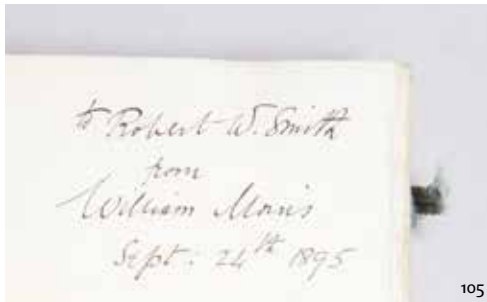 to Robert W. Smith
from
William Morris
Sept: 24th 1895
105